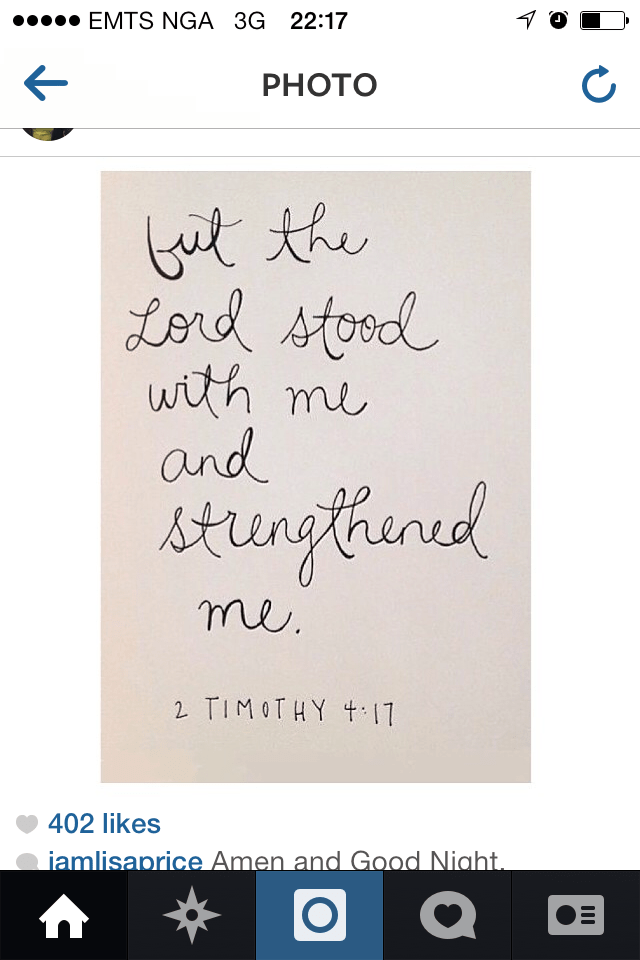 EMTS NGA 3G 22:17
PHOTO
but the
Lord stood
with me
and
strengthened
me.
2 TIMOTHY 4:17
402 likes
iamlisaprice Amen and Good Night.